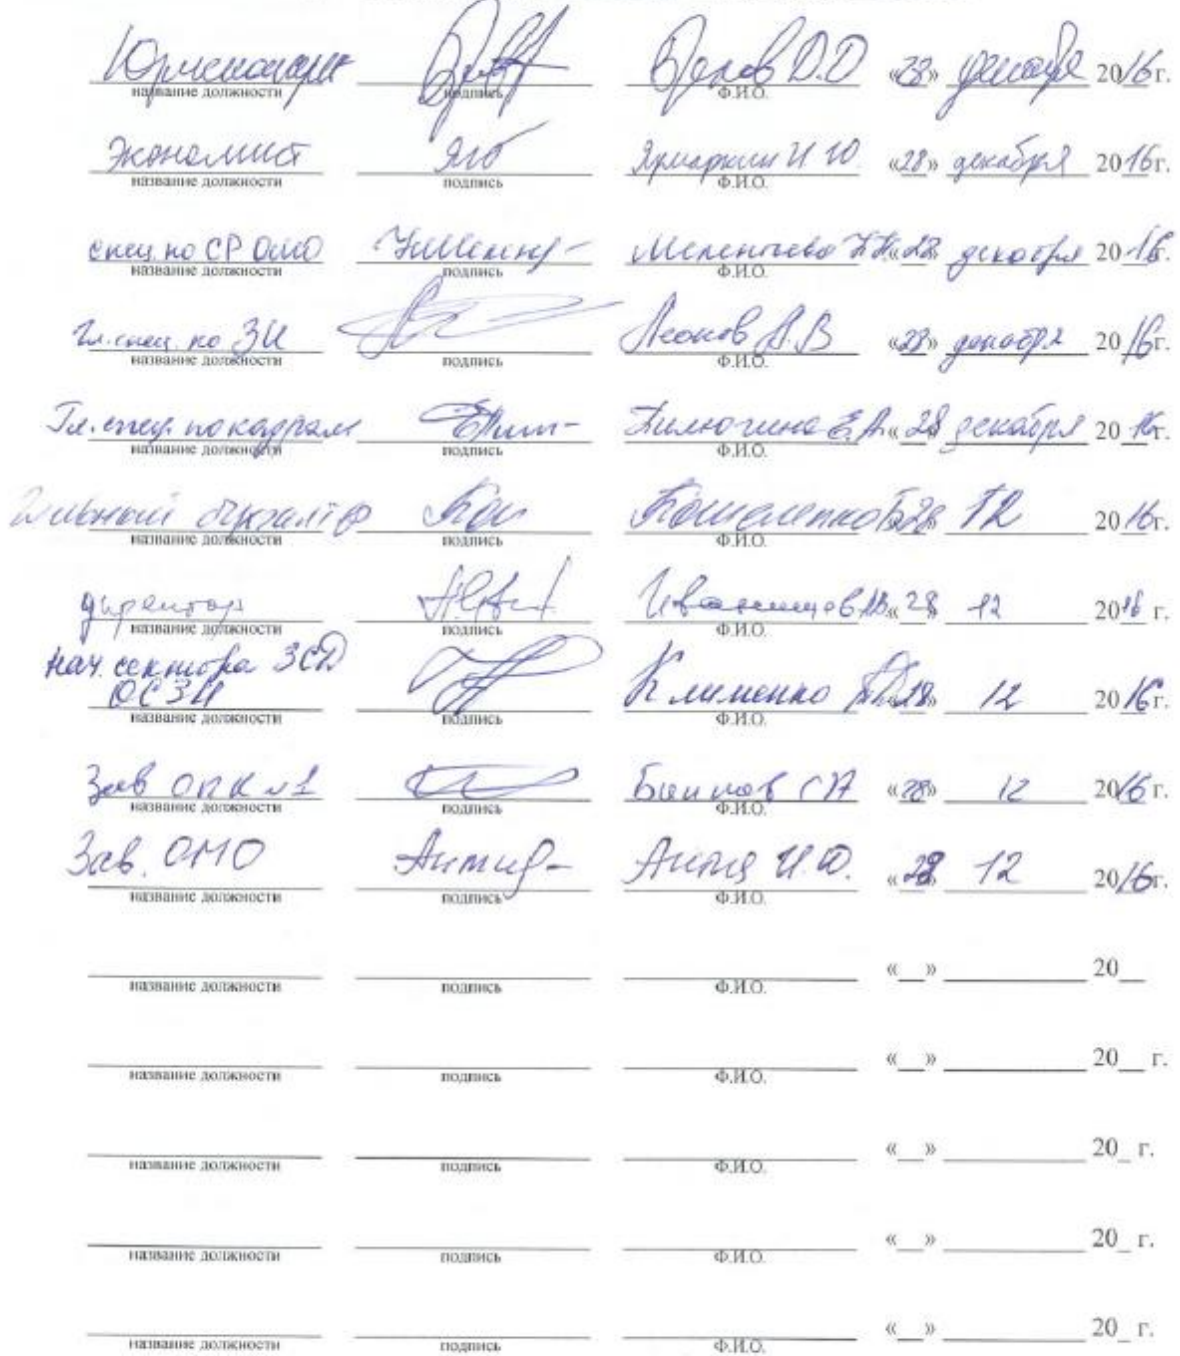 Юрисконсульт Д.Д «28» декабря 2016г.
название должности подпись Ф.И.О.
Экономист Ярмаркин И Ю. «28» декабря 2016г.
название должности подпись Ф.И.О.
спец. по СР ОМО Мелентьева «28 декабря 2016.
название должности подпись Ф.И.О.
Гл. спец. по ЗИ Леонов А.В «28» декабря 2016г.
название должности подпись Ф.И.О.
Гл. спец. по кадрам Е.А. «28 декабря 2016г.
название должности подпись Ф.И.О.
бухгалтер 28 12 2016г.
название должности подпись Ф.И.О.
директор «28 12 2016 г.
название должности подпись Ф.И.О.
Нач. сектора ЗСД
ОСЗИ Клименко 28» 12 2016г.
название должности подпись Ф.И.О.
Зав ОПК №1 «28» 12 2016 г.
название должности подпись Ф.И.О.
Зав. ОМО И.Ю. «28» 12 2016г.
название должности подпись Ф.И.О.
«__» 20__
название должности подпись Ф.И.О.
«__» 20__ г.
название должности подпись Ф.И.О.
«__» 20_ г.
название должности подпись Ф.И.О.
«__» 20_ г.
название должности подпись Ф.И.О.
«__» 20_ г.
название должности подпись Ф.И.О.